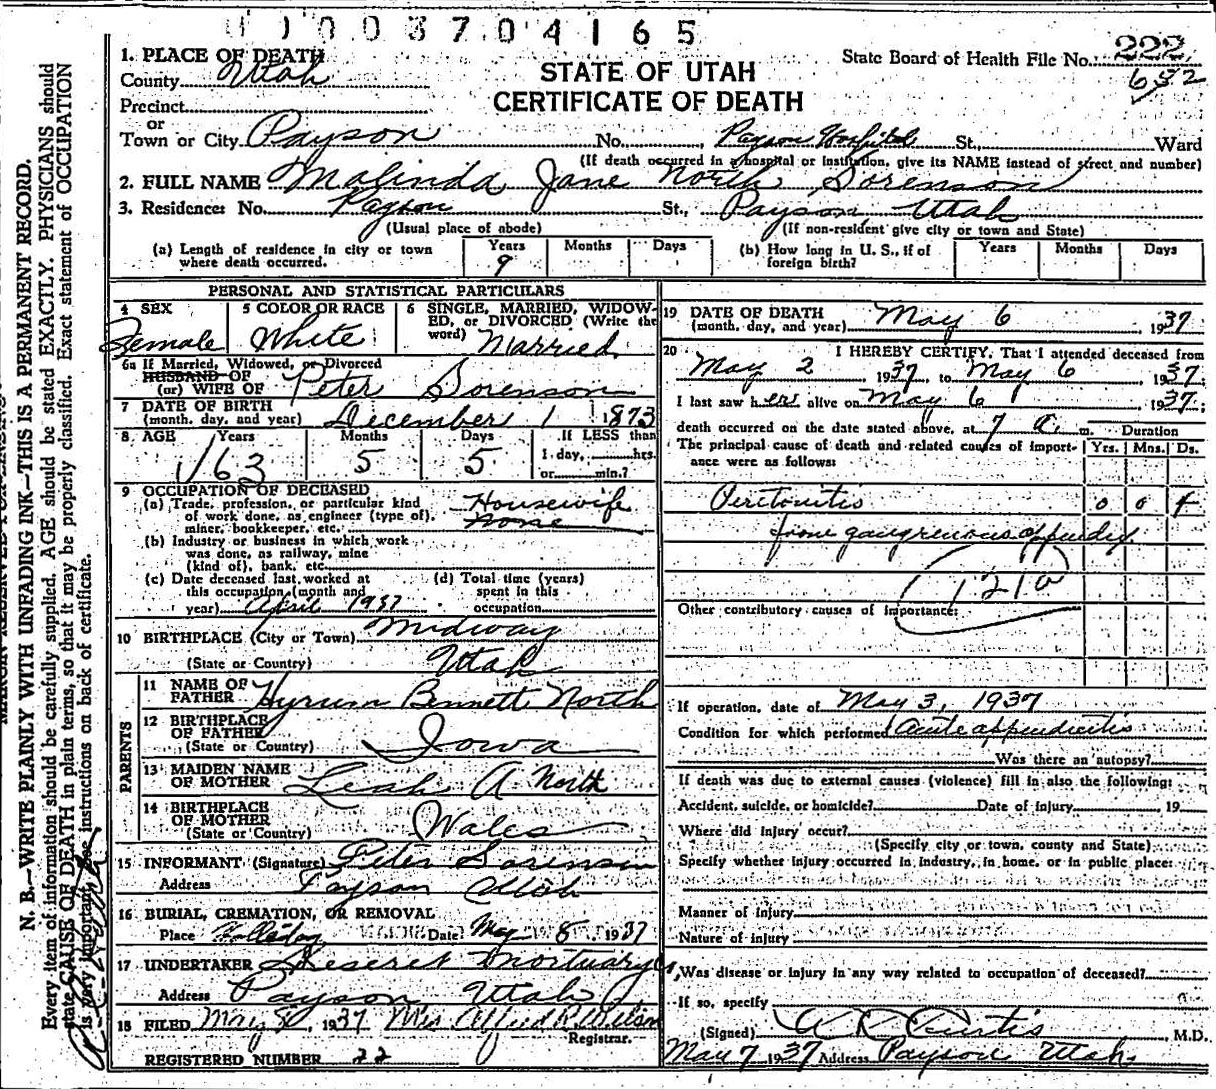 003704165
1. PLACE OF DEATH
County Utah
Precinct
or
Town or City Payson No. Payson Hospital St., Ward
(If death occurred in a hospital or institution, give its NAME instead of street and number)
STATE OF UTAH
CERTIFICATE OF DEATH
State Board of Health File No. 222
652
2. FULL NAME Malinda Jane North Sorenson
3. Residence: No. Payson St., Payson Utah
(Usual place of abode) (If non-resident give city or town and State)
(a) Length of residence in city or town where death occurred. Years 9 Months Days
(b) How long in U. S., if of foreign birth? Years Months Days
PERSONAL AND STATISTICAL PARTICULARS
4 SEX Female
5 COLOR OR RACE White
6 SINGLE, MARRIED, WIDOWED, or DIVORCED (Write the word) Married
6a If Married, Widowed, or Divorced
HUSBAND OF
(or) WIFE OF Peter Sorenson
7 DATE OF BIRTH
(month, day, and year) December 1 1873
8 AGE Years 63 Months 5 Days 5 If LESS than 1 day, hrs. or min.?
9 OCCUPATION OF DECEASED
(a) Trade, profession, or particular kind of work done, as engineer (type of), miner, bookkeeper, etc. Housewife
None
(b) Industry or business in which work was done, as railway, mine (kind of), bank, etc.
(c) Date deceased last worked at this occupation (month and year) April 1937
(d) Total time (years) spent in this occupation
10 BIRTHPLACE (City or Town) Midway
(State or Country) Utah
PARENTS
11 NAME OF FATHER Hyrum Bennett North
12 BIRTHPLACE OF FATHER
(State or Country) Iowa
13 MAIDEN NAME OF MOTHER Leah A North
14 BIRTHPLACE OF MOTHER
(State or Country) Wales
15 INFORMANT (Signature) Peter Sorenson
Address Payson Utah
16 BURIAL, CREMATION, OR REMOVAL
Place Holladay Date May 8 1937
17 UNDERTAKER Deseret Mortuary
Address Payson Utah
18 FILED May 8, 1937 Mrs Alfred R. Wilson
Registrar.
REGISTERED NUMBER 22
19 DATE OF DEATH
(month, day, and year) May 6 1937
20 I HEREBY CERTIFY, That I attended deceased from
May 2 1937, to May 6, 1937
I last saw her alive on May 6, 1937;
death occurred on the date stated above, at 7 a. m. Duration
The principal cause of death and related causes of importance were as follows: Yrs. Mos. Ds.
Peritonitis 0 0 4
from gangrenous appendix
121a
Other contributory causes of importance:
If operation, date of May 3, 1937
Condition for which performed Acute appendicitis
Was there an autopsy?
If death was due to external causes (violence) fill in also the following:
Accident, suicide, or homicide? Date of injury 19
Where did injury occur?
(Specify city or town, county and State)
Specify whether injury occurred in industry, in home, or in public place:
Manner of injury
Nature of injury
Was disease or injury in any way related to occupation of deceased?
If so, specify
(Signed) Curtis M.D.
May 7 1937 Address Payson Utah
N. B.—WRITE PLAINLY WITH UNFADING INK—THIS IS A PERMANENT RECORD.
Every item of information should be carefully supplied. AGE should be stated EXACTLY. PHYSICIANS should
state CAUSE OF DEATH in plain terms, so that it may be properly classified. Exact statement of OCCUPATION
is very important. See instructions on back of certificate.